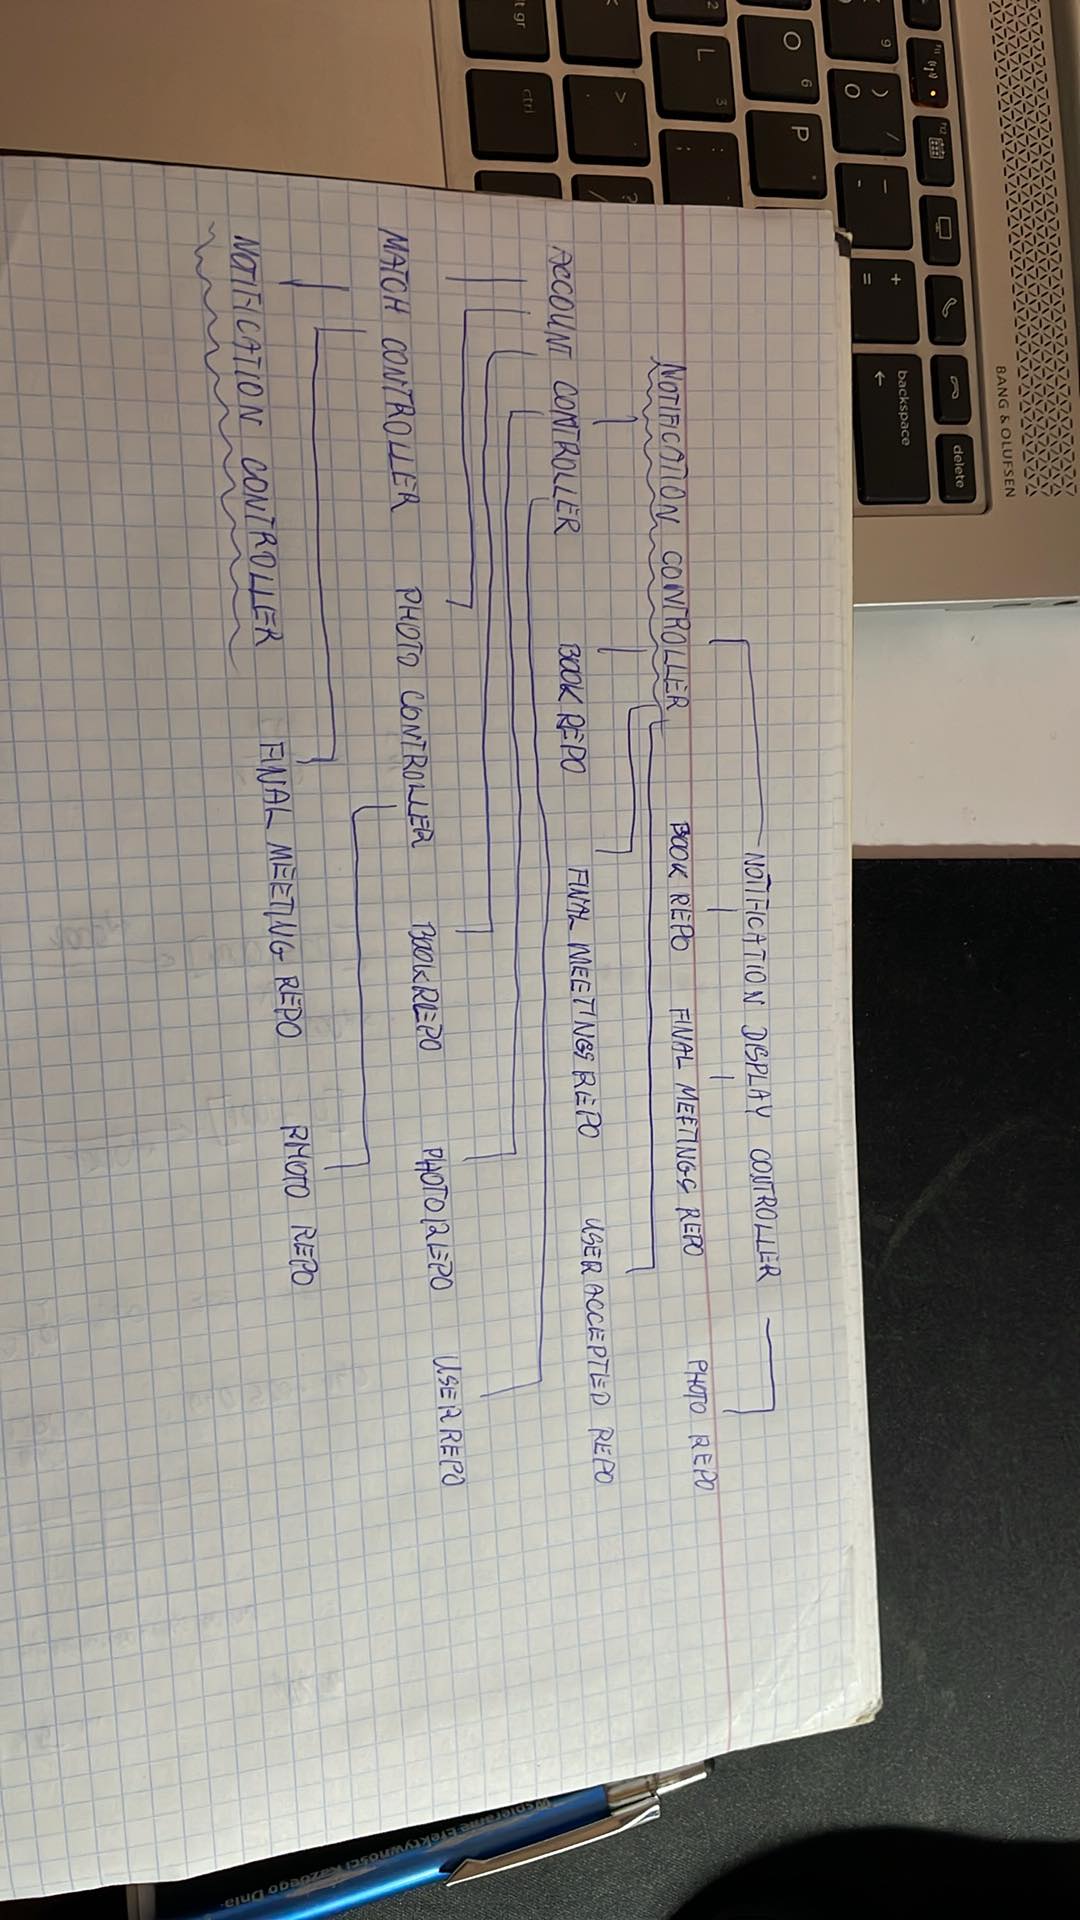 BANG & OLUFSEN
delete
backspace
9 ) / _ +
0 - =
O 6 P
L 3 : ;
> ? /
t gr ctrl
NOTIFICATION DISPLAY CONTROLLER
NOTIFICATION CONTROLLER BOOK REPO FINAL MEETINGS REPO PHOTO REPO
ACCOUNT CONTROLLER BOOK REPO FINAL MEETINGS REPO USER ACCEPTED REPO
MATCH CONTROLLER PHOTO CONTROLLER BOOK REPO PHOTO REPO USER REPO
NOTIFICATION CONTROLLER FINAL MEETING REPO PHOTO REPO